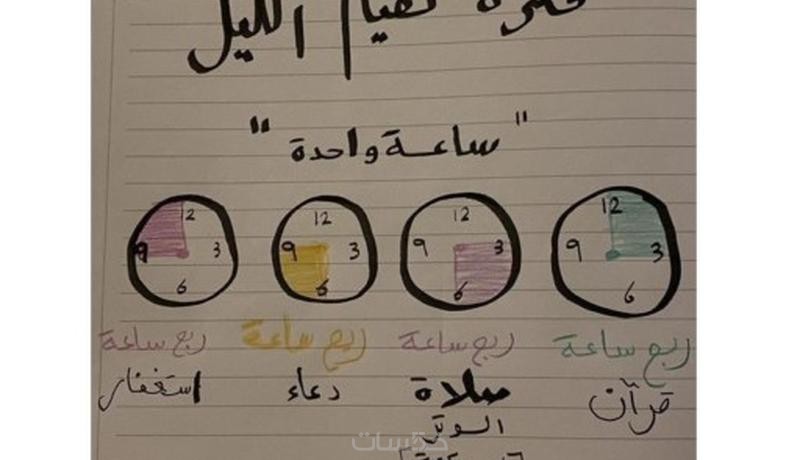 فكرة لقيام الليل
"ساعة واحدة"
12 3 6 9
12 3 6 9
12 3 6 9
12 3 6 9
ربع ساعة ربع ساعة ربع ساعة ربع ساعة
قرآن صلاة دعاء استغفار
الوتر